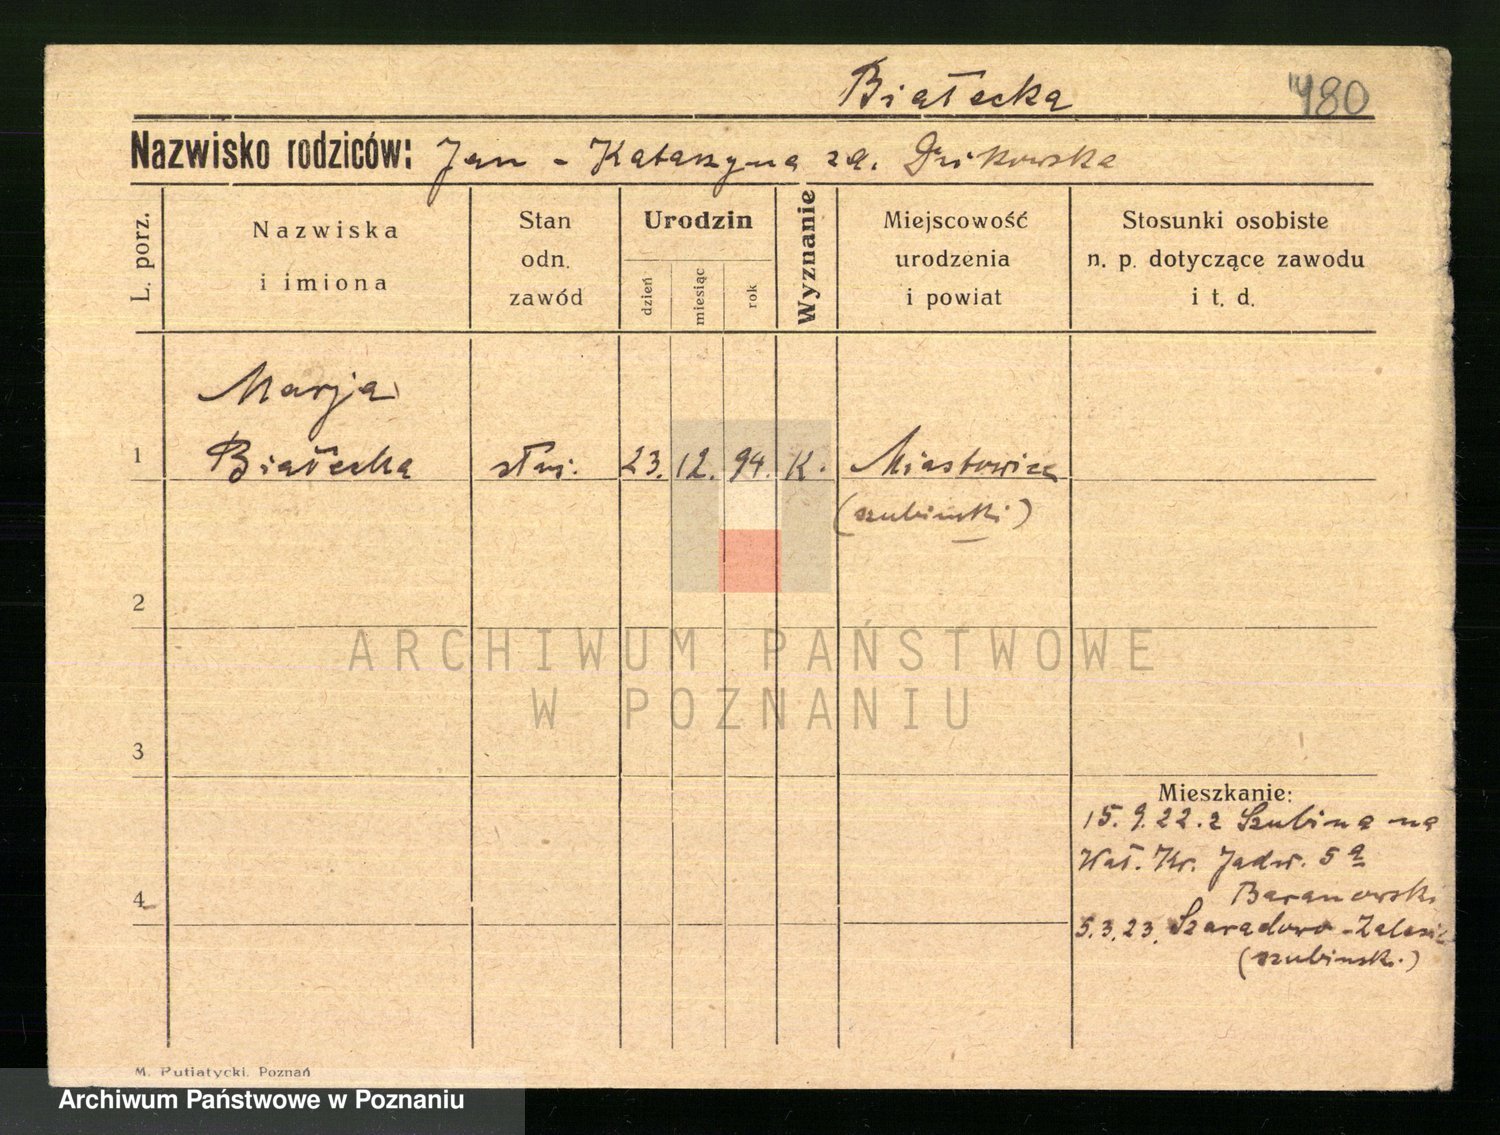 Białecka 480
Nazwisko rodziców: Jan - Katarzyna za.
L. porz.
Nazwiska
i imiona
Stan
odn.
zawód
Urodzin
dzień
miesiąc
rok
Wyznanie
Miejscowość
urodzenia
i powiat
Stosunki osobiste
n. p. dotyczące zawodu
i t. d.
Marja
1 Białecka służ. 23. 12. 94. K. Miastowice
(szubiński)
2
ARCHIWUM PAŃSTWOWE
W POZNANIU
3
Mieszkanie:
15. 9. 22. z Szubina na
Wał. Kr. Jadw. 5 a
Baranowski
4
5.3.23. Szaradowo - Zalesie
(szubińsk.)
M. Putiatycki, Poznań
Archiwum Państwowe w Poznaniu